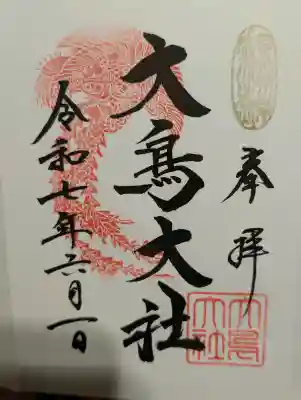 奉拝
大鳥大社
令和七年六月一日
大鳥大社